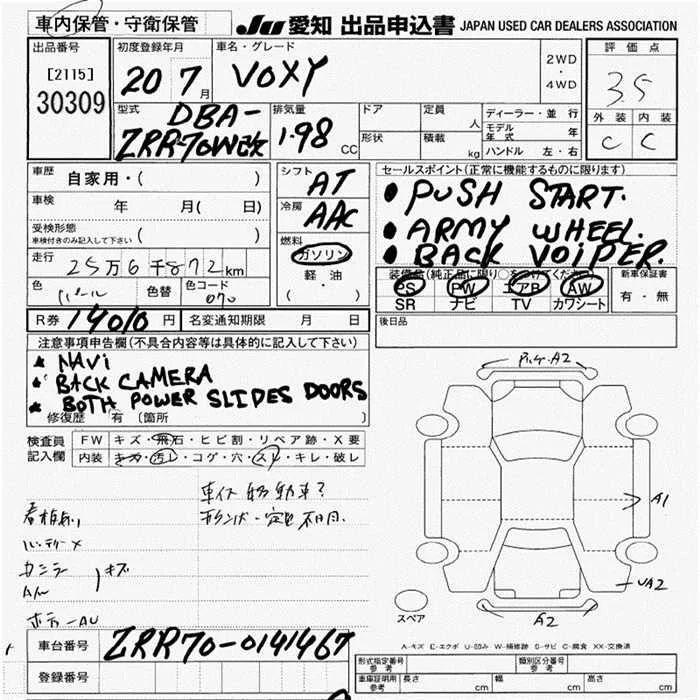 車内保管・守衛保管
JU 愛知 出品申込書 JAPAN USED CAR DEALERS ASSOCIATION
出品番号
[2115]
30309
初度登録年月
20 7月
車名・グレード
VOXY
2WD
・
4WD
評価点
3.5
外装 内装
C C
型式
DBA-
ZRR-70W改
排気量
1.98 CC
ドア
形状
定員 人
積載 kg
ディーラー・並行
モデル年式 年
ハンドル 左・右
車歴 自家用・( )
車検 年 月( 日)
受検形態
車検付きのみ記入して下さい ( )
走行 25万6千872km
色 パール 色替 色コード 070
シフト AT
冷房 AAC
燃料
ガソリン
軽・油
( )
セールスポイント(正常に機能するものに限ります)
• PUSH START.
• ARMY WHEEL.
• BACK VOIPER.
装備品(純正品に限り○をつけてください)
PS PW エアB AW
SR ナビ TV カワシート
新車保証書
有・無
R券 14010円 名変通知期限 月 日
後日品
注意事項申告欄(不具合内容等は具体的に記入して下さい)
★ NAVi
★ BACK CAMERA
★ BOTH POWER SLIDES DOORS
修復歴 有 〔箇所 〕
検査員記入欄
FW キズ・飛石・ヒビ割・リペア跡・X要
内装 キズ・汚レ・コゲ・穴・スレ・キレ・破レ
A2
A1
UA2
A2
スペア
キズ
車台番号 ZRR70-0141467
登録番号
A-キズ E-エクボ U-凹み W-補修跡 S-サビ C-腐食 XX-交換済
形式指定番号 参考
類別区分番号 参考
車庫証明用 参考 長さ cm 幅 cm 高さ cm